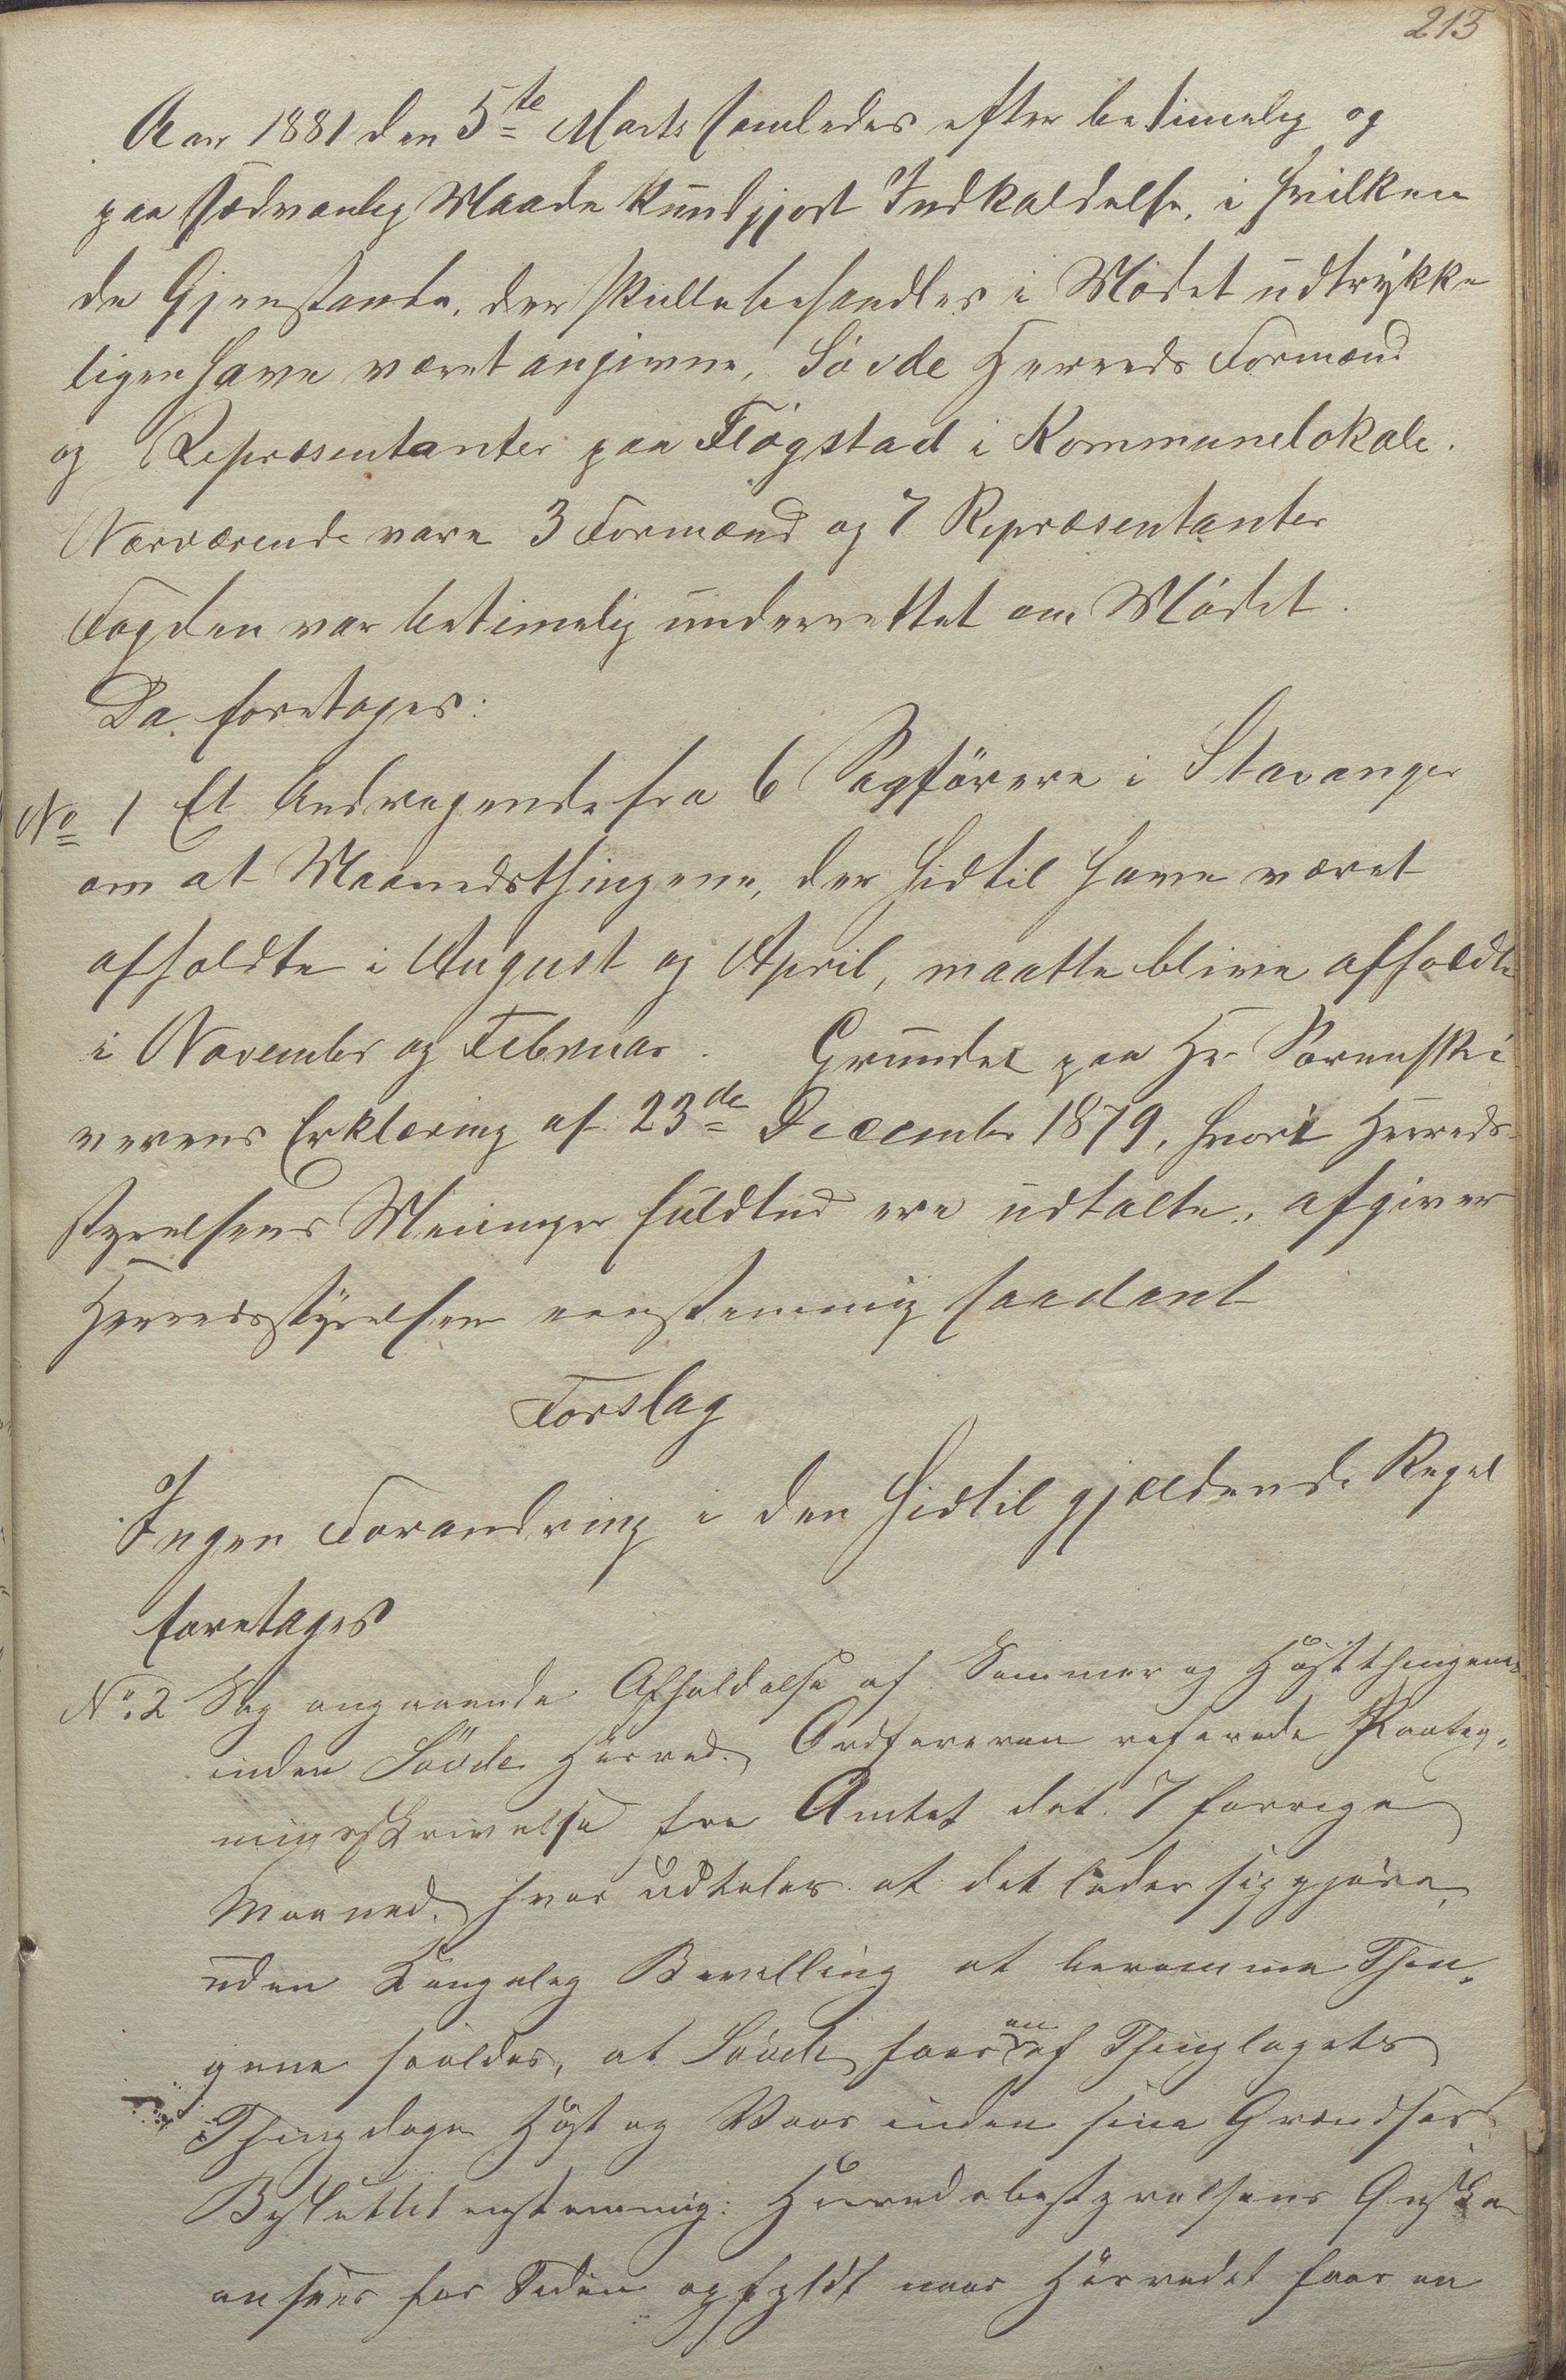 213
Aar 1881 den 5te Marts samledes efter betimelig og
paa sædvanlig Maade kundgjort Indkaldelse, i hvilken
de Gjenstande, der skulle behandles i Mödet udtrykke
ligen have været angivne, Sövde Herreds Formænd
og Repræsentanter paa Fløgstad i Kommunelokale.
Nærværende vare 3 Formænd og 7 Repræsentanter
Fogden var betimelig underrettet om Mödet.
Da foretoges:
No 1 Et Andragende fra 6 Sagförere i Stavanger
om at Maanedsthingene, der hidtil have været
afholdte i August og April, maatte blive afholdte
i November og Februar. Grundet paa Hr Sorenskri
verens Erklæring af 23de December 1879, hvori Herreds-
styrelsens Meninger fuldtud ere udtalte, afgiver
Herredsstyrelsen eenstemmig saadant
Forslag
Ingen Forandring i den hidtil gjældende Regel
foretages
No. 2 Sag angaaende Afholdelse af Sommer og Høstthingene
inden Sövde Herred. Ordføreren refererede Paateg-
ningsskrivelse fra Amtet dat. 7 forrige
Maaned, hvor udtales at det lader sig gjøre,
uden Kongelig Bevilling at beramme Thin-
gene saaledes, at Søvde faar en af Thinglagets
Thingdage Høst og Vaar inden sine Grændser
Besluttet enstemmig: Herredsbestyrelsens Ønske
ansees for Tiden opfyldt naar Herredet faar en